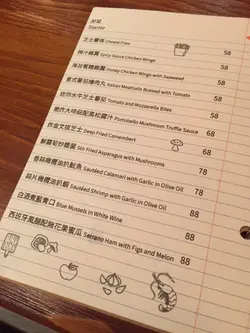 前菜
Starter
芝士薯條 Cheese Fries 58
辣汁雞翼 Spicy Sauce Chicken Wings 58
海苔蜜糖雞翼 Honey Chicken Wings with Seaweed 58
意式蕃茄燴肉丸 Italian Meatballs Braised with Tomato 58
迷你水牛芝士蕃茄 Tomato and Mozzarella Bites 58
脆炸大啡菇配黑松露汁 Portobello Mushroom Truffle Sauce 68
炸金文拔芝士 Deep Fried Camembert 68
鮮露筍炒雜菌 Stir Fried Asparagus with Mushrooms 68
香蒜橄欖油扒魷魚 Sautéed Calamari with Garlic in Olive Oil 78
蒜片橄欖油扒蝦 Sautéed Shrimp with Garlic in Olive Oil 78
白酒煮藍青口 Blue Mussels in White Wine 88
西班牙風腿配無花果蜜瓜 Serrano Ham with Figs and Melon 88